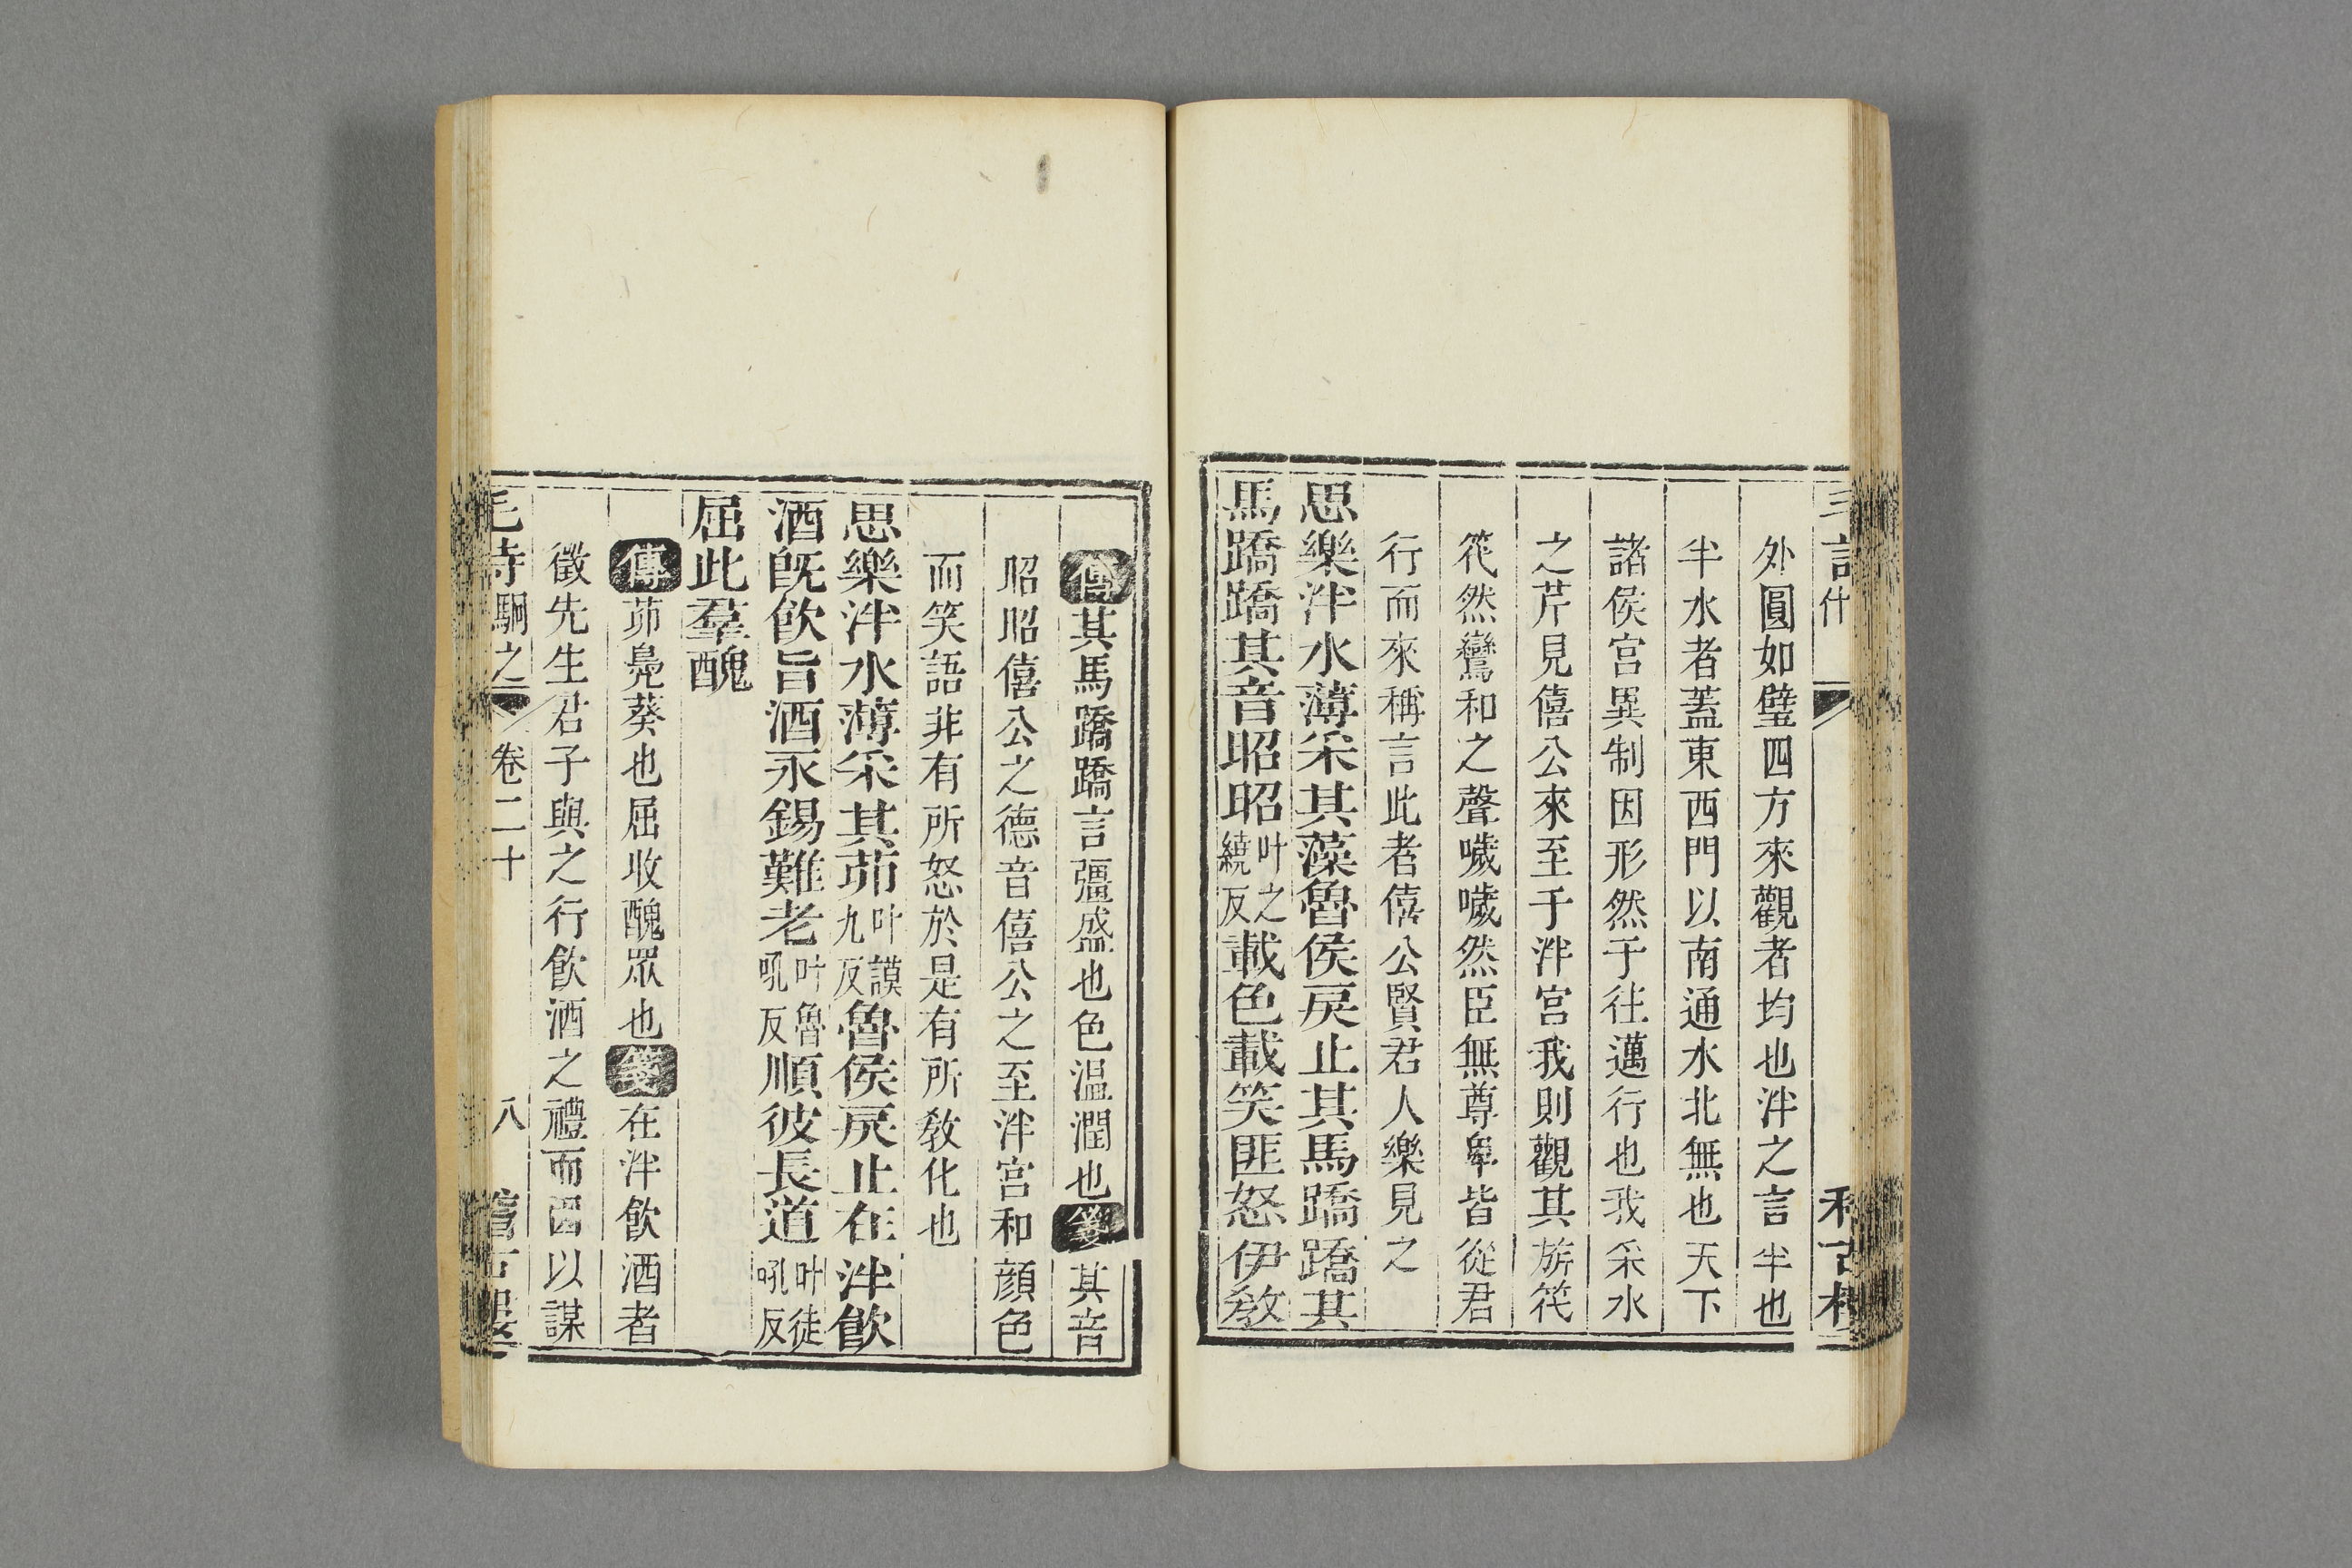 外圓如璧四方來觀者均也泮之言半也
半水者蓋東西門以南通水北無也天下
諸侯宮異制因形然于往邁行也我采水
之芹見僖公來至于泮宮我則觀其旂筏
筏然鸞和之聲噦噦然臣無尊𤰞皆從君
行而來稱言此者僖公賢君人樂見之
思樂泮水薄采其藻魯侯戾止其馬蹻蹻其
馬蹻蹻其音昭昭叶之繞反載色載笑匪怒伊敎
傳其馬蹻蹻言彊盛也色溫潤也箋其音
昭昭僖公之德音僖公之至泮宮和顏色
而笑語非有所怒於是有所敎化也
思樂泮水薄采其茆叶謨九反魯侯戾止在泮飮
酒旣飮旨酒永錫難老叶魯吼反順彼長道叶徒吼反
屈此羣醜
傳茆鳧葵也屈收醜眾也箋在泮飮酒者
徵先生君子與之行飮酒之禮而因以謀
毛詩駉之 卷二十 八 稽古樓